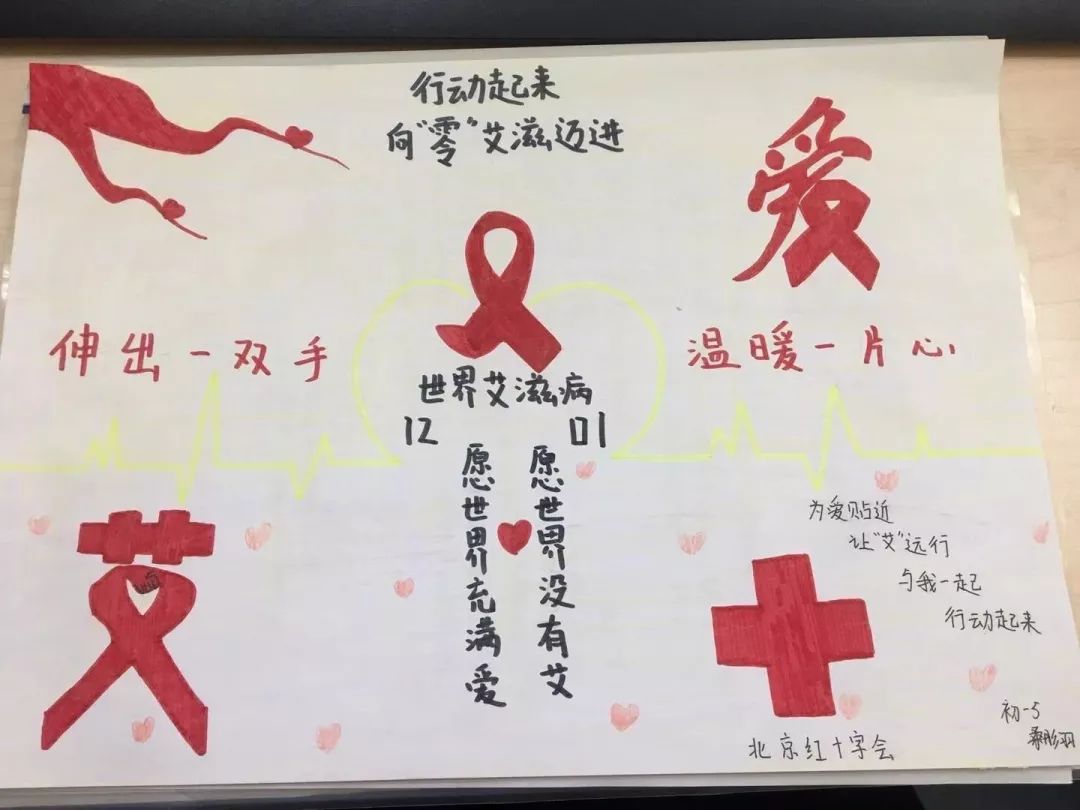 行动起来
向"零"艾滋迈进
爱
伸出一双手
温暖一片心
世界艾滋病
12 01
愿世界没有艾
愿世界充满爱
艾
为爱贴近
让"艾"远行
与我一起
行动起来
北京红十字会
初一5